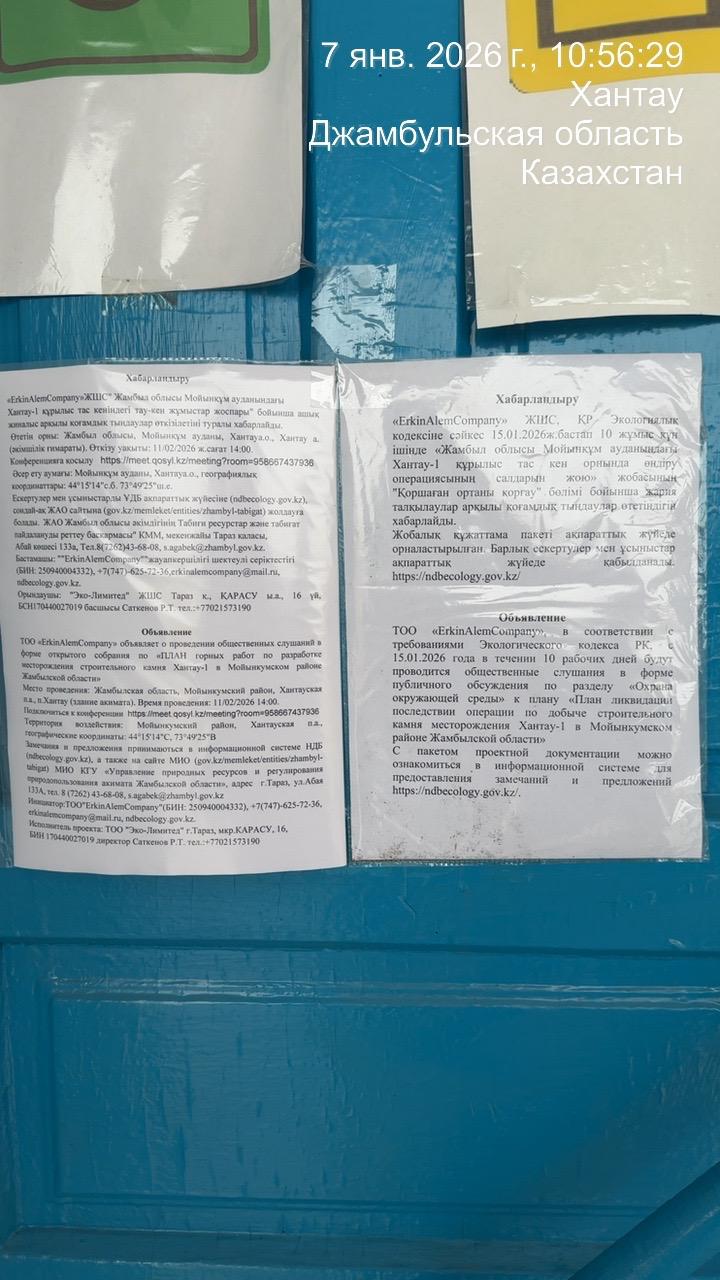 7 янв. 2026 г., 10:56:29
Хантау
Джамбульская область
Казахстан
Хабарландыру
«ErkinAlemCompany»ЖШС" Жамбыл облысы Мойынқұм ауданындағы
Хантау-1 құрылыс тас кеніндегі тау-кен жұмыстар жоспары" бойынша ашық
жиналыс арқылы қоғамдық тыңдаулар өткізілетіні туралы хабарлайды.
Өтетін орны: Жамбыл облысы, Мойынқұм ауданы, Хантауа.о., Хантау а.
(әкімшілік ғимараты). Өткізу уақыты: 11/02/2026 ж.сағат 14:00.
Конференцияға қосылу https://meet.qosyl.kz/meeting?room=958667437936
Әсер ету аумағы: Мойынқұм ауданы, Хантауа.о., географиялық
координаттары: 44°15'14"с.б. 73°49'25"ш.е.
Ескертулер мен ұсыныстарды ҰДБ ақпараттық жүйесіне (ndbecology.gov.kz),
сондай-ақ ЖАО сайтына (gov.kz/memleket/entities/zhambyl-tabigat) жолдауға
болады. ЖАО Жамбыл облысы әкімдігінің Табиғи ресурстар және табиғат
пайдалануды реттеу басқармасы" КММ, мекенжайы Тараз қаласы,
Абай көшесі 133а, Тел.8(7262)43-68-08, s.agabek@zhambyl.gov.kz.
Бастамашы: ""ErkinAlemCompany""жауапкершілігі шектеулі серіктестігі
(БИН: 250940004332), +7(747)-625-72-36,erkinalemcompany@mail.ru,
ndbecology.gov.kz.
Орындаушы: "Эко-Лимитед" ЖШС Тараз к., ҚАРАСУ ы.а., 16 үй,
БСН170440027019 басшысы Саткенов Р.Т. тел.:+77021573190
Объявление
ТОО «ErkinAlemCompany» объявляет о проведении общественных слушаний в
форме открытого собрания по «ПЛАН горных работ по разработке
месторождения строительного камня Хантау-1 в Мойынкумском районе
Жамбылской области»
Место проведения: Жамбылская область, Мойынкумский район, Хантауская
п.а., п.Хантау (здание акимата). Время проведения: 11/02/2026 14:00.
Подключиться к конференции https://meet.qosyl.kz/meeting?room=958667437936
Территория воздействия: Мойынкумский район, Хантауская п.а.,
географические координаты: 44°15'14"С, 73°49'25"В
Замечания и предложения принимаются в информационной системе НДБ
(ndbecology.gov.kz), а также на сайте МИО (gov.kz/memleket/entities/zhambyl-
tabigat) МИО КГУ «Управление природных ресурсов и регулирования
природопользования акимата Жамбылской области», адрес г.Тараз, ул.Абая
133А, тел. 8 (7262) 43-68-08, s.agabek@zhambyl.gov.kz
Инициатор:ТОО"ErkinAlemCompany"(БИН: 250940004332), +7(747)-625-72-36,
erkinalemcompany@mail.ru, ndbecology.gov.kz.
Исполнитель проекта: ТОО "Эко-Лимитед" г.Тараз, мкр.КАРАСУ, 16,
БИН 170440027019 директор Саткенов Р.Т. тел.:+77021573190
Хабарландыру
«ErkinAlemCompany» ЖШС, ҚР Экологиялық
кодексіне сәйкес 15.01.2026ж.бастап 10 жұмыс күн
ішінде «Жамбыл облысы Мойынқұм ауданындағы
Хантау-1 құрылыс тас кен орнында өндіру
операциясының салдарын жою» жобасының
"Қоршаған ортаны қорғау" бөлімі бойынша жария
талқылаулар арқылы қоғамдық тыңдаулар өтетіндігін
хабарлайды.
Жобалық құжаттама пакеті ақпараттық жүйеде
орналастырылған. Барлық ескертулер мен ұсыныстар
ақпараттық жүйеде қабылданады.
https://ndbecology.gov.kz/
Объявление
ТОО «ErkinAlemCompany», в соответствии с
требованиями Экологического кодекса РК, с
15.01.2026 года в течении 10 рабочих дней будут
проводится общественные слушания в форме
публичного обсуждения по разделу «Охрана
окружающей среды» к плану «План ликвидации
последствии операции по добыче строительного
камня месторождения Хантау-1 в Мойынкумском
районе Жамбылской области»
С пакетом проектной документации можно
ознакомиться в информационной системе для
предоставления замечаний и предложений
https://ndbecology.gov.kz/.